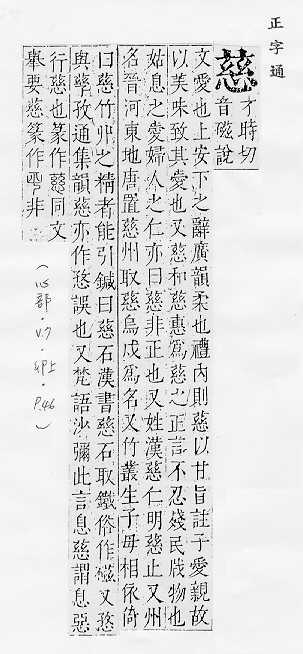 正字通
慈
才時切
音磁說
文愛也上安下之辭廣韻柔也禮內則慈以甘旨註子愛親故
以美味致其愛也又慈和慈惠爲慈之正言不忍殘民戕物也
姑息之愛婦人之仁亦曰慈非正也又姓漢慈仁明慈止又州
名晉河東地唐置慈州取慈烏戍爲名又竹叢生子母相依倚
曰慈竹之精者能引鍼曰慈石漢書慈石取鐵俗作磁又
與孳孜通集韻慈亦作誤也又梵語沙彌此言息慈謂息惡
行慈也篆作同文
舉要慈篆作非
(心部·V.7·卯上·P.46)